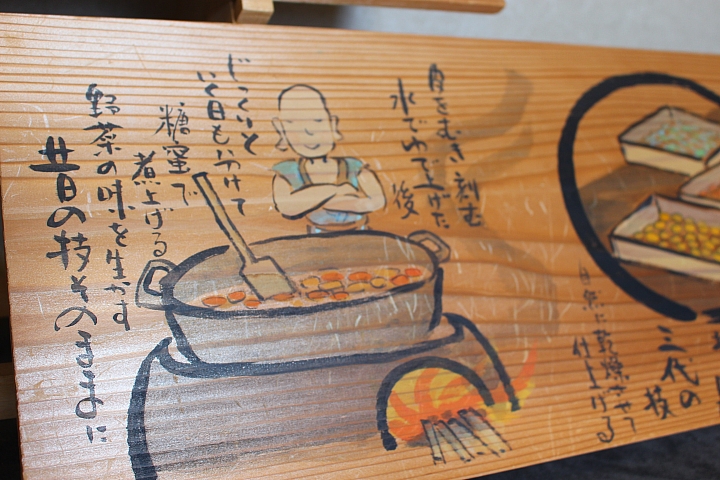 皮をむき刻む
水でゆで上げた
後
じっくりと
いく日もかけて
糖蜜で
煮上げる
野菜の味を生かす
昔の技そのままに
三代の
技
自然に乾燥させて
仕上げる